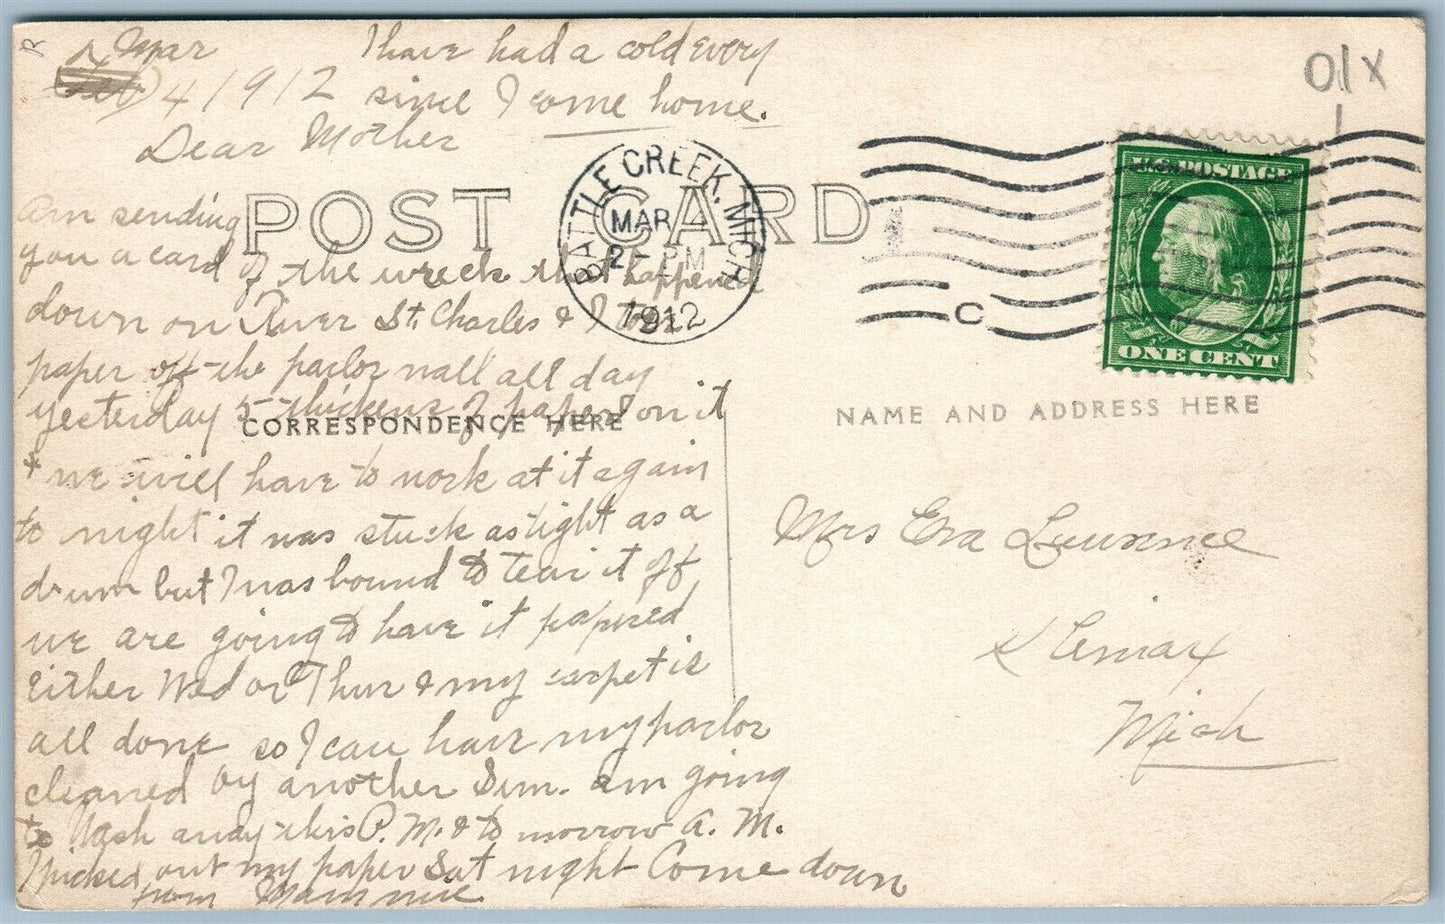 R
Mar
Feb 4 1912
I have had a cold every
since I come home.
Dear Mother
POST CARD
BATTLE CREEK, MICH.
MAR 4
2 - PM
1912
C
U.S. POSTAGE
ONE CENT
Am sending
you a card of the wreck that happened
down on River St. Charles & I tore
paper off the parlor wall all day
yesterday 5 thickens of paper on it
& we will have to work at it again
to night it was stuck as tight as a
drum but I was bound to tear it off
we are going to have it papered
Either Wed or Thur & my carpet is
all done so I can have my parlor
cleaned by another Sun. am going
to Wash away this P.M. & to morrow A.M.
Picked out my paper Sat night Come down
from Mammie
CORRESPONDENCE HERE
NAME AND ADDRESS HERE
Mrs Eva Lawrence
Klimax
Mich